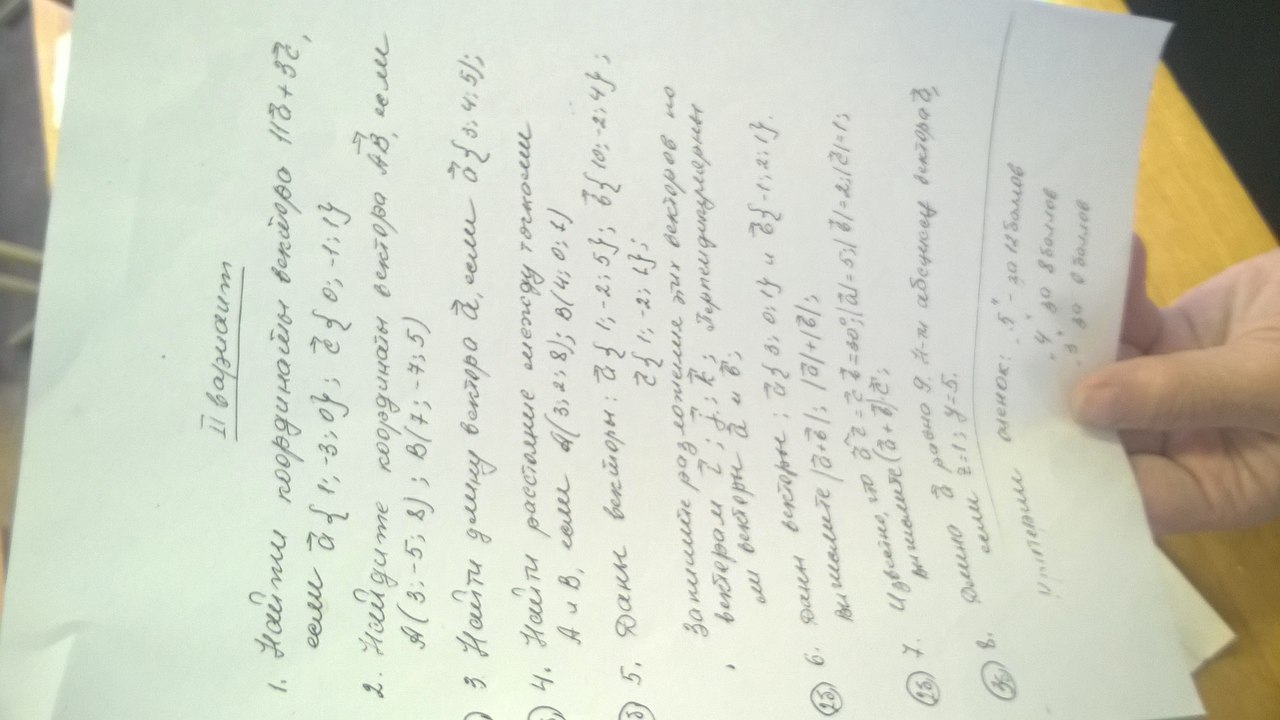 II вариант
1. Найти координаты вектора 11a⃗ + 3c⃗,
если a⃗ {1; -3; 0}; c⃗ {0; -1; 1}
2. Найдите координаты вектора AB⃗, если
A(3; -5; 8); B(7; -7; 5)
3 Найти длину вектора a⃗, если a⃗ {3; 4; 5};
4. Найти расстояние между точками
A и B, если A(3; 2; 8); B(4; 0; 2)
5. Даны векторы: a⃗ {1; -2; 5}; b⃗ {10; -2; 4};
c⃗ {1; -2; 1};
Запишите разложения этих векторов по
векторам i⃗; j⃗; k⃗; Перпендикулярны
ли векторы a⃗ и b⃗;
2б 6. Даны векторы: a⃗ {3; 0; 1} и b⃗ {-1; 2; 1}.
Вычислите |a⃗+b⃗|; |a⃗|+|b⃗|;
2б 7. Известно, что a⃗ c⃗ = c⃗ b⃗ = 30°; |a⃗| = 5; |b⃗| = 2; |c⃗| = 1;
вычислите (a⃗ + b⃗)c⃗;
8. Длина a⃗ равна 9. абсциссу вектора a⃗,
если z=1; y=5.
Критерии оценок: „5" - за 12 баллов
„4" за 8 баллов
за баллов